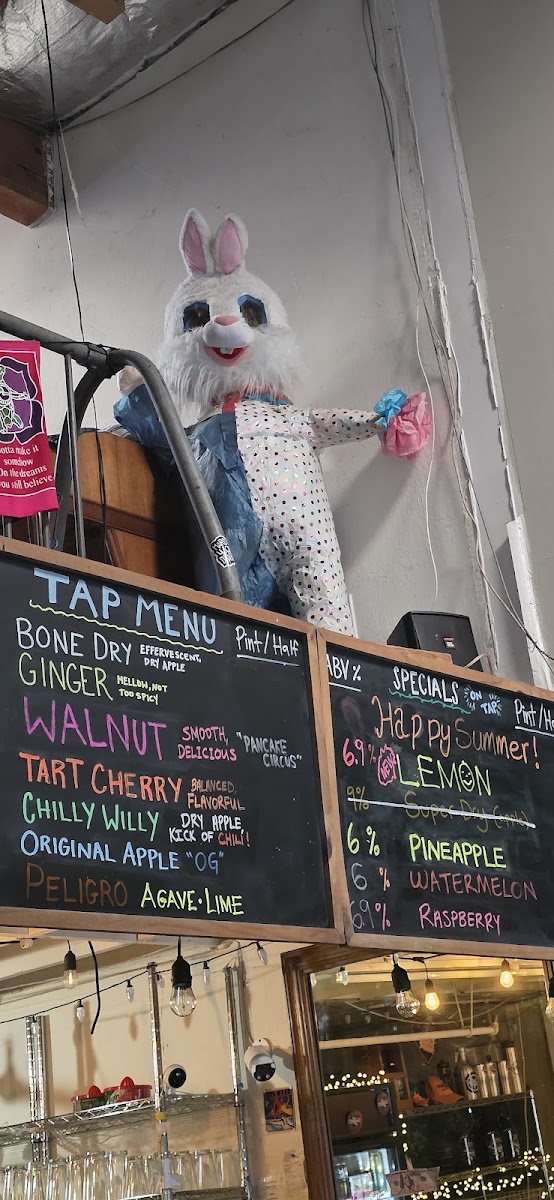 otta make it
somehow
On the dreams
you still believe
TAP MENU
Pint/Half
BONE DRY EFFERVESCENT,
DRY APPLE
GINGER MELLOW, NOT
TOO SPICY
WALNUT SMOOTH, "PANCAKE
DELICIOUS CIRCUS"
TART CHERRY BALANCED,
FLAVORFUL
CHILLY WILLY DRY APPLE
KICK OF CHILI!
ORIGINAL APPLE "OG"
PELIGRO AGAVE·LIME
ABV% SPECIALS ON
TAP Pint/Ha
Happy Summer!
6.9% NEW LEMON
9% Super Dry
6% PINEAPPLE
6% WATERMELON
6.9% RASPBERRY